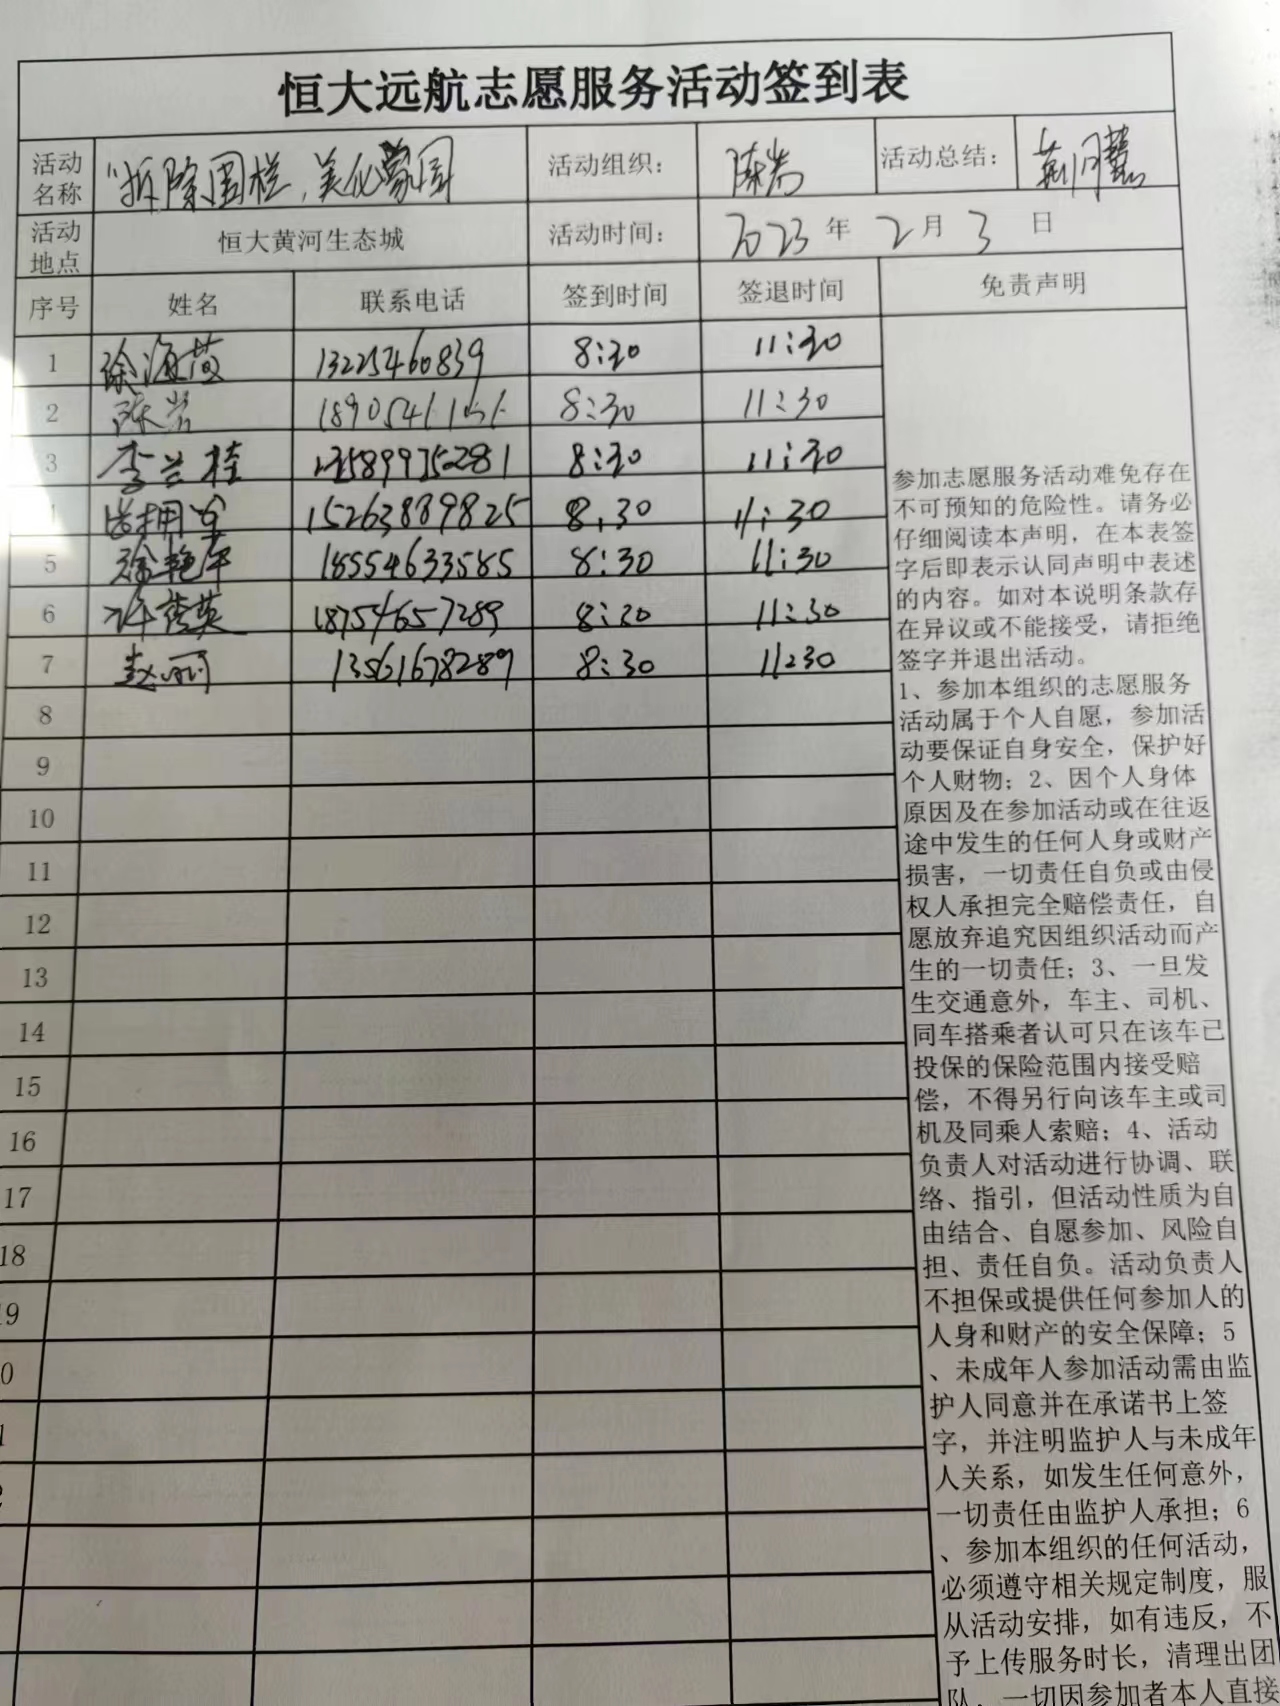 恒大远航志愿服务活动签到表
活动名称 "拆除围栏,美化家园 活动组织: 陈岩 活动总结:
活动地点 恒大黄河生态城 活动时间: 2023 年 2 月 3 日
序号 姓名 联系电话 签到时间 签退时间 免责声明
1 徐海茵 13225460839 8:30 11:30
2 陈岩 8:30 11:30
3 李兰桂 13589975281 8:30 11:30
15263889825 8:30 11:30
5 徐艳华 18554633585 8:30 11:30
6 许秀英 18754657289 8:30 11:30
7 赵丽 13561678289 8:30 11:30
8
9
10
11
12
13
14
15
16
17
18
19
0
1
2
参加志愿服务活动难免存在
不可预知的危险性。请务必
仔细阅读本声明,在本表签
字后即表示认同声明中表述
的内容。如对本说明条款存
在异议或不能接受,请拒绝
签字并退出活动。
1、参加本组织的志愿服务
活动属于个人自愿,参加活
动要保证自身安全,保护好
个人财物;2、因个人身体
原因及在参加活动或在往返
途中发生的任何人身或财产
损害,一切责任自负或由侵
权人承担完全赔偿责任,自
愿放弃追究因组织活动而产
生的一切责任;3、一旦发
生交通意外,车主、司机、
同车搭乘者认可只在该车已
投保的保险范围内接受赔
偿,不得另行向该车主或司
机及同乘人索赔;4、活动
负责人对活动进行协调、联
络、指引,但活动性质为自
由结合、自愿参加、风险自
担、责任自负。活动负责人
不担保或提供任何参加人的
人身和财产的安全保障;5
、未成年人参加活动需由监
护人同意并在承诺书上签
字,并注明监护人与未成年
人关系,如发生任何意外,
一切责任由监护人承担;6
、参加本组织的任何活动,
必须遵守相关规定制度,服
从活动安排,如有违反,不
予上传服务时长,清理出团
队,一切因参加者本人直接